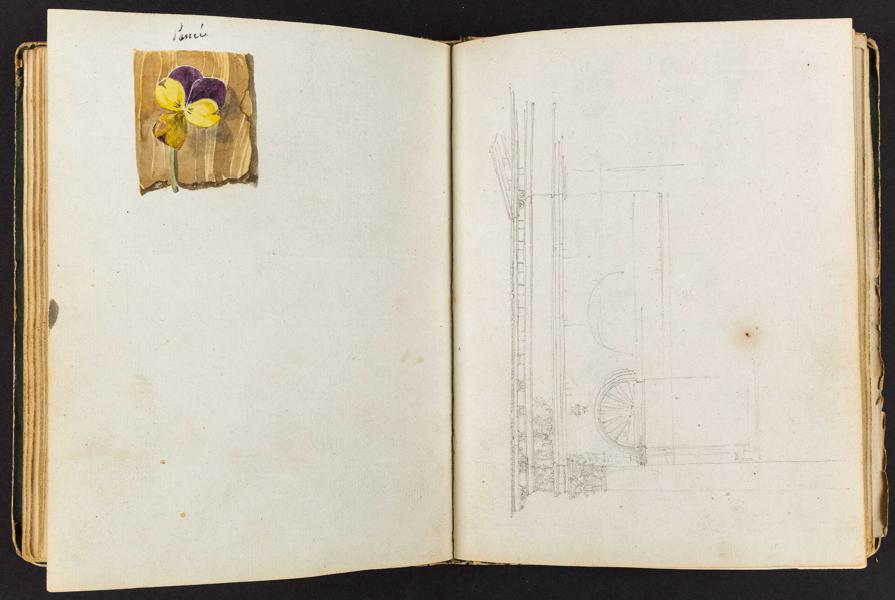 Pensée